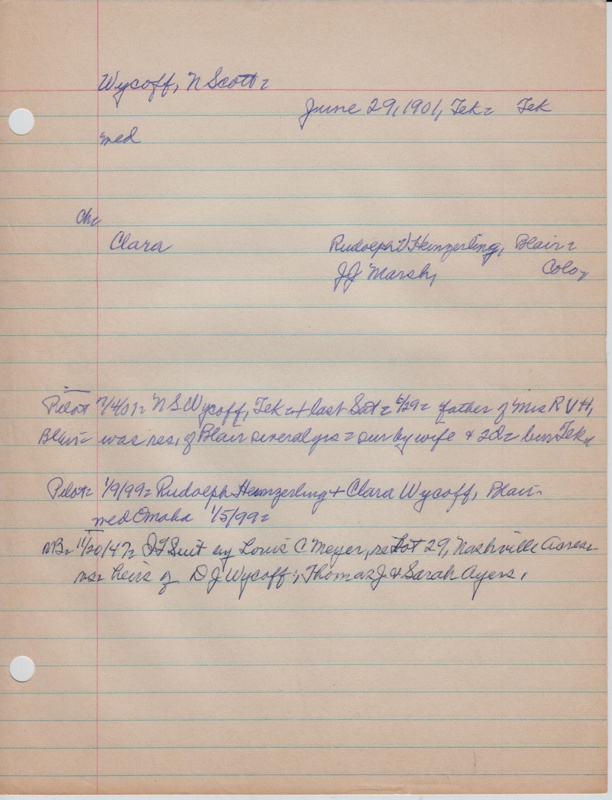 Wycoff, N Scott =
June 29, 1901, Tek = Tek
med
Ch
Clara Rudolph V Hemzerling, Blair =
J J Marsh, Colo,
Pilot 7/4/01 = N S Wycoff, Tek = + last Sat = 6/29 = father of Mrs R V H,
Blair = was res, of Blair several yrs = sur by wife & 2d = bur Tek
Pilot = 1/9/99 = Rudolph Hemzerling + Clara Wycoff, Blair =
med Omaha 1/5/99 =
11/20/47 = Suit by Louis C Meyer, re Lot 29, Nashville Acres =
vs = heirs of D J Wycoff; Thomas J & Sarah Ayers,